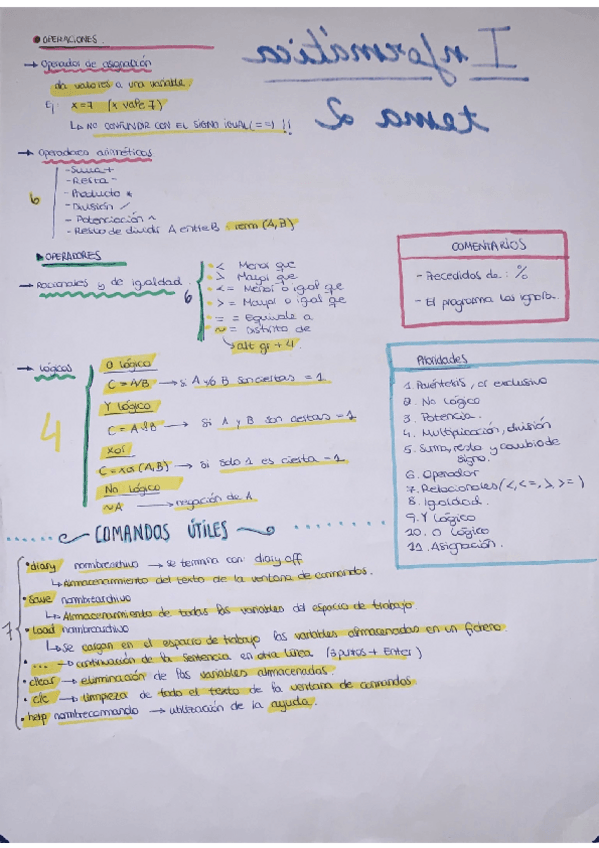 Informática
tema 2
• OPERACIONES.
→ Operador de asignación
da valores a una variable.
Ej: x=7 (x vale 7)
↳ NO CONFUNDIR CON EL SIGNO IGUAL (==) !!
→ Operadores aritméticos
6
- Suma +
- Resta -
- Producto *
- División /
- Potenciación ^
- Resto de dividir A entre B : rem (A,B)
OPERADORES
→ Racionales y de igualdad.
6
< Menor que
> Mayor que
<= Menor o igual que
>= Mayor o igual que
== Equivale a
~= Distinto de
↳ alt gr + 4
→ Lógicos
4
O lógico
C = A|B → si A y/o B son ciertas = 1
Y lógico
C = A&B → si A y B son ciertas = 1
Xor
C = xor (A,B) → si solo 1 es cierta = 1
No lógico
~A → negación de A
COMENTARIOS
- Precedidos de : %
- El programa los ignora.
Prioridades
1. Paréntesis, or exclusivo
2. No lógico
3. Potencia.
4. Multiplicación, división
5. Suma, resta y cambio de
signo.
6. Operador
7. Relacionales (<, <=, >, >=)
8. Igualdad.
9. Y lógico
10. O lógico
11. Asignación.
COMANDOS ÚTILES
7
• diary nombrearchivo → se termina con: diary off
↳ Almacenamiento del texto de la ventana de comandos.
• Save nombrearchivo
↳ Almacenamiento de todas las variables del espacio de trabajo.
• Load nombrearchivo
↳ se cargan en el espacio de trabajo las variables almacenadas en un fichero.
• ... → continuación de la sentencia en otra línea (3 puntos + Enter)
• clear → eliminación de las variables almacenadas.
• clc → limpieza de todo el texto de la ventana de comandos.
• help nombrecomando → utilización de la ayuda.